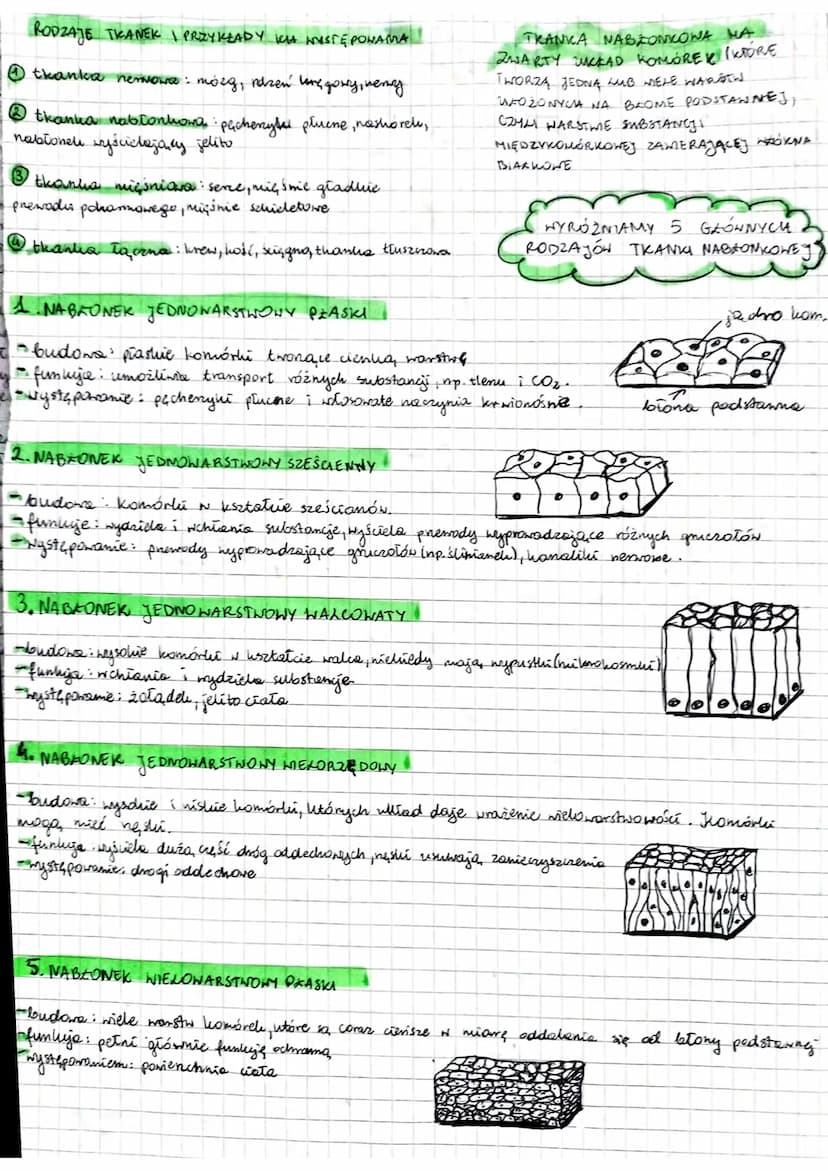 RODZAJE TKANEK I PRZYKŁADY ICH WYSTĘPOWANIA
① tkanka nerwowa: mózg, rdzeń kręgowy, nerwy
② tkanka nabłonkowa: pęcherzyki płucne, naskórek,
nabłonek wyścielający jelito
③ tkanka mięśniowa: serce, mięśnie gładkie
przewodu pokarmowego, mięśnie szkieletowe
④ tkanka łączna: krew, kość, ścięgna, tkanka tłuszczowa
TKANKA NABŁONKOWA MA
ZWARTY UKŁAD KOMÓREK, KTÓRE
TWORZĄ JEDNĄ LUB WIELE WARSTW
UŁOŻONYCH NA BŁONIE PODSTAWNEJ,
CZYLI WARSTWIE SUBSTANCJI
MIĘDZYKOMÓRKOWEJ ZAWIERAJĄCEJ WŁÓKNA
BIAŁKOWE
WYRÓŻNIAMY 5 GŁÓWNYCH
RODZAJÓW TKANKI NABŁONKOWEJ
1. NABŁONEK JEDNOWARSTWOWY PŁASKI
- budowa: płaskie komórki tworzące cienką warstwę
- funkcje: umożliwia transport różnych substancji, np. tlenu i CO₂.
- występowanie: pęcherzyki płucne i włosowate naczynia krwionośne.
jądro kom.
błona podstawna
2. NABŁONEK JEDNOWARSTWOWY SZEŚCIENNY
- budowa: komórki w kształcie sześcianów.
- funkcje: wydziela i wchłania substancje, wyściela przewody wyprowadzające różnych gruczołów
- występowanie: przewody wyprowadzające gruczołów (np. ślinianek), kanaliki nerwowe.
3. NABŁONEK JEDNOWARSTWOWY WALCOWATY
- budowa: wysokie komórki w kształcie walca, niekiedy mają wypustki (mikrokosmki)
- funkcja: wchłania i wydziela substancje
- występowanie: żołądek, jelito ciała
4. NABŁONEK JEDNOWARSTWOWY WIELORZĘDOWY
- budowa: wysokie i niskie komórki, których układ daje wrażenie wielowarstwowości. Komórki
mogą mieć rzęski.
- funkcja: wyściela dużą część dróg oddechowych, rzęski usuwają zanieczyszczenia
- występowanie: drogi oddechowe
5. NABŁONEK WIELOWARSTWOWY PŁASKI
- budowa: wiele warstw komórek, które są coraz cieńsze w miarę oddalania się od błony podstawnej
- funkcja: pełni głównie funkcję ochronną
- występowaniem: powierzchnia ciała